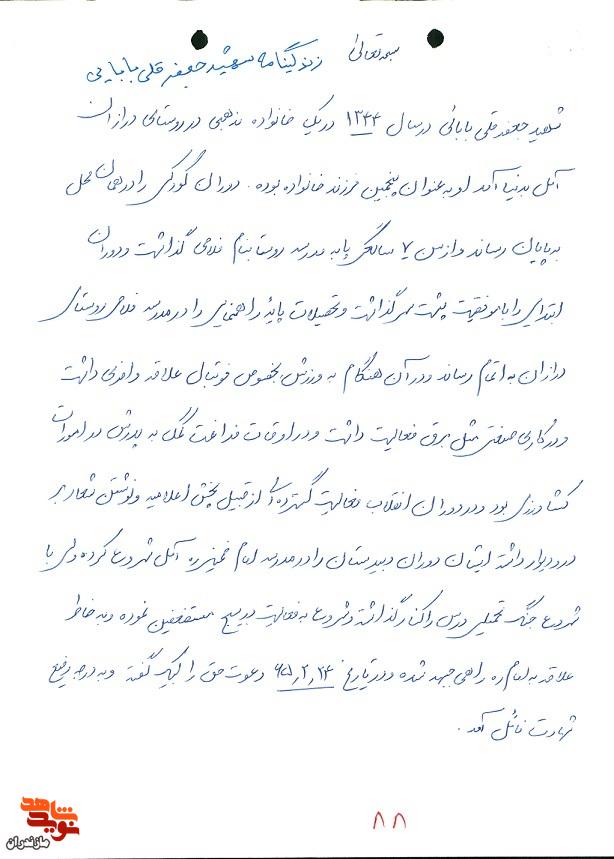 بسمه تعالی
زندگینامه شهید جعفر قلی بابایی
شهید جعفر قلی بابائی در سال ۱۳۴۴ در یک خانواده مذهبی در روستای درازان
آمل بدنیا آمد او به عنوان پنجمین فرزند خانواده بوده. دوران کودکی را در همان محل
به پایان رساند و از سن ۷ سالگی پا به مدرسه روستا بنام فلاحی گذاشت و دوران
ابتدایی را با موفقیت پشت سر گذاشت و تحصیلات پایهٔ راهنمایی را در مدرسه فلاحی روستای
درازان به اتمام رساند و در آن هنگام به ورزش بخصوص فوتبال علاقه وافری داشت
و در کارهای صنعتی مثل برق فعالیت داشت و در اوقات فراغت کمک به پدرش در امورات
کشاورزی بود و در دوران انقلاب فعالیت گسترده ای از قبیل پخش اعلامیه و نوشتن شعار بر
در و دیوار داشته ایشان دوران دبیرستان را در مدرسه امام خمینی ره آمل شروع کرده ولی با
شروع جنگ تحمیلی درس را کنار گذاشته و شروع به فعالیت در بسیج مستضعفین نموده و به خاطر
علاقه به امام ره راهی جبهه شده و در تاریخ ۶۵,۲,۲۴ دعوت حق را لبیک گفته و به درجه رفیع
شهادت نائل آمد.
۸۸
نوید شاهد
مازندران